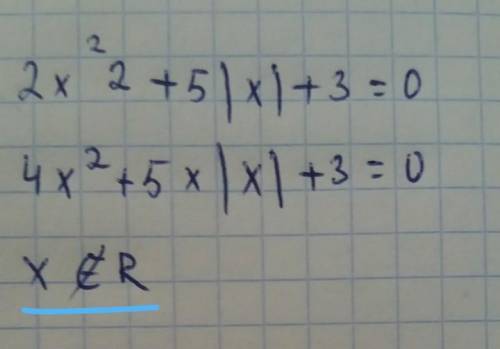 2x²2 + 5|x| + 3 = 0
4x² + 5x|x| + 3 = 0
x ∉ R